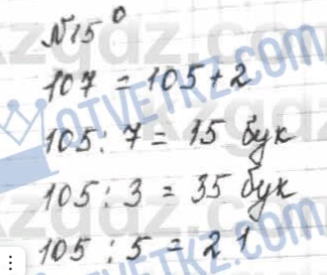 №15⁰
107 = 105 + 2
105 : 7 = 15 бук
105 : 3 = 35 бук
105 : 5 = 21
OTVETKZ.COM